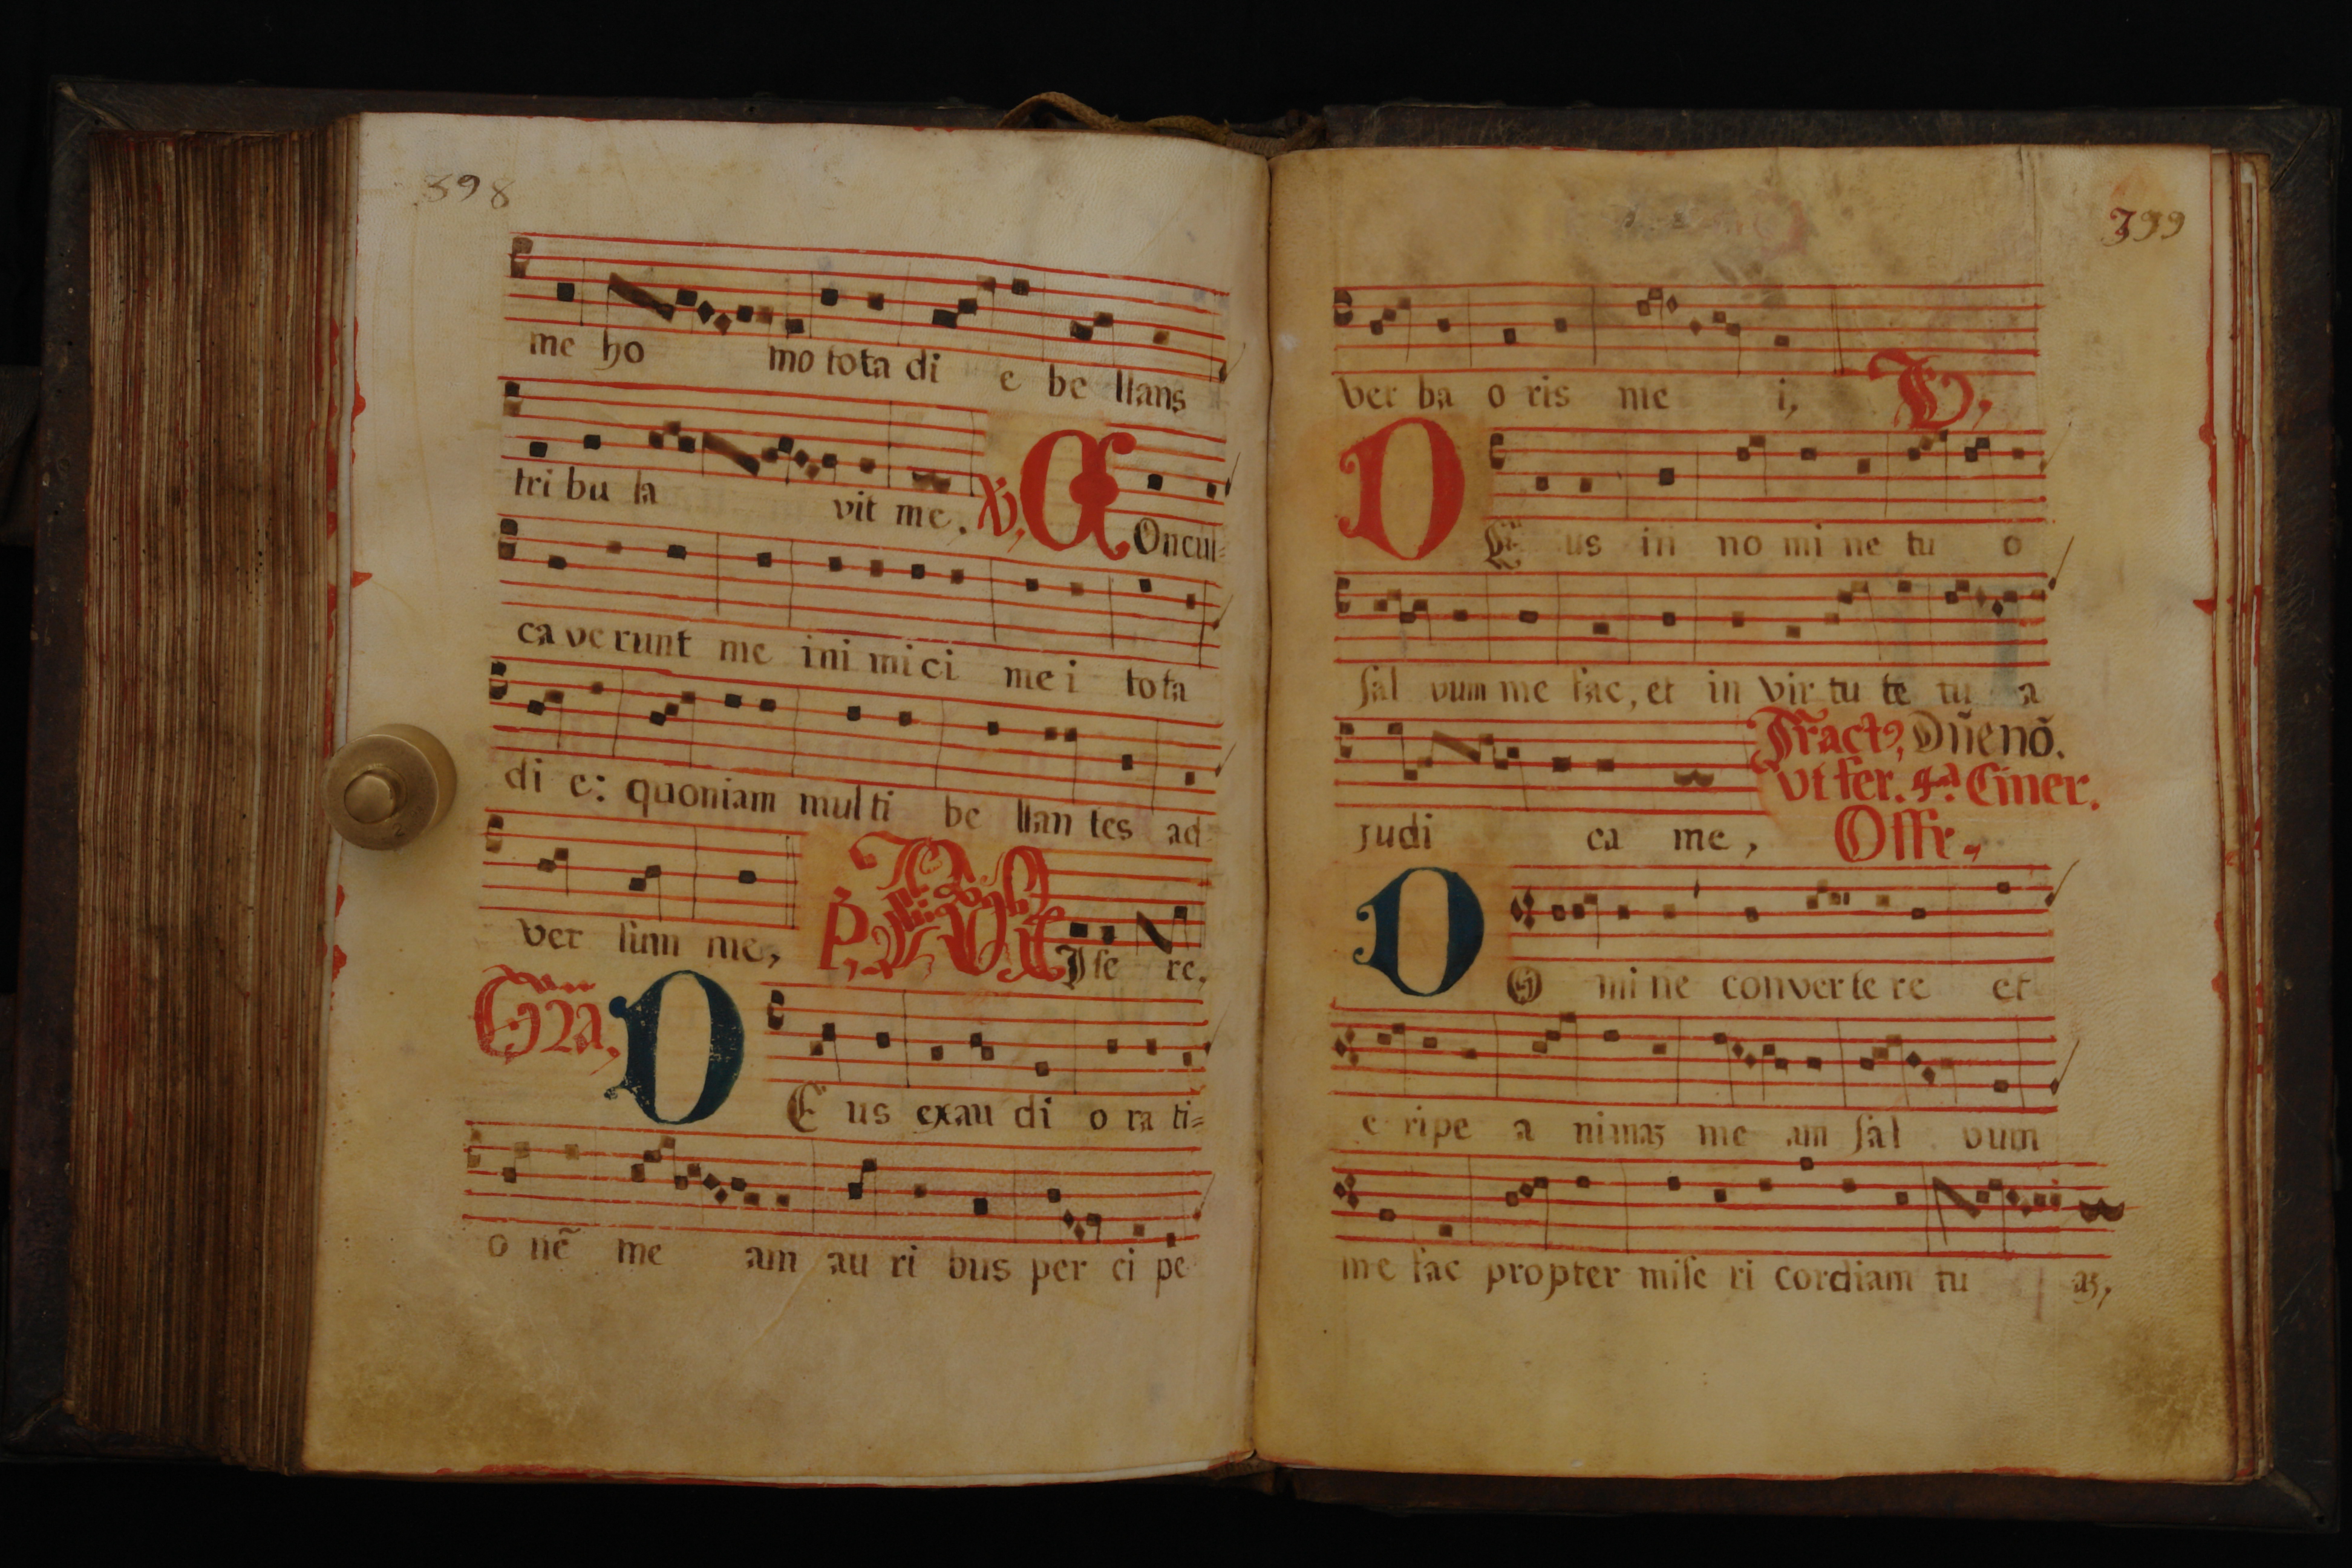 398
me ho mo tota di e be llans
tri bu la vit me. V, COncul=
ca ve runt me ini mi ci me i tota
di e: quoniam mul ti be llan tes ad
ver sum me,
Ise re.
Gra, DE us exau di o ra ti=
o nẽ me am au ri bus per ci pe
399
ver ba o ris me i, V,
DE us in no mi ne tu o
sal vum me fac, et in vir tu te tu a
Tractꝰ, Dñe nõ.
judi ca me, ut fer. 4.ª Ciner.
Offr.
DO mi ne conver te re et
e ripe a nimaʒ me am sal vum
me fac propter mise ri cordiam tu aʒ,